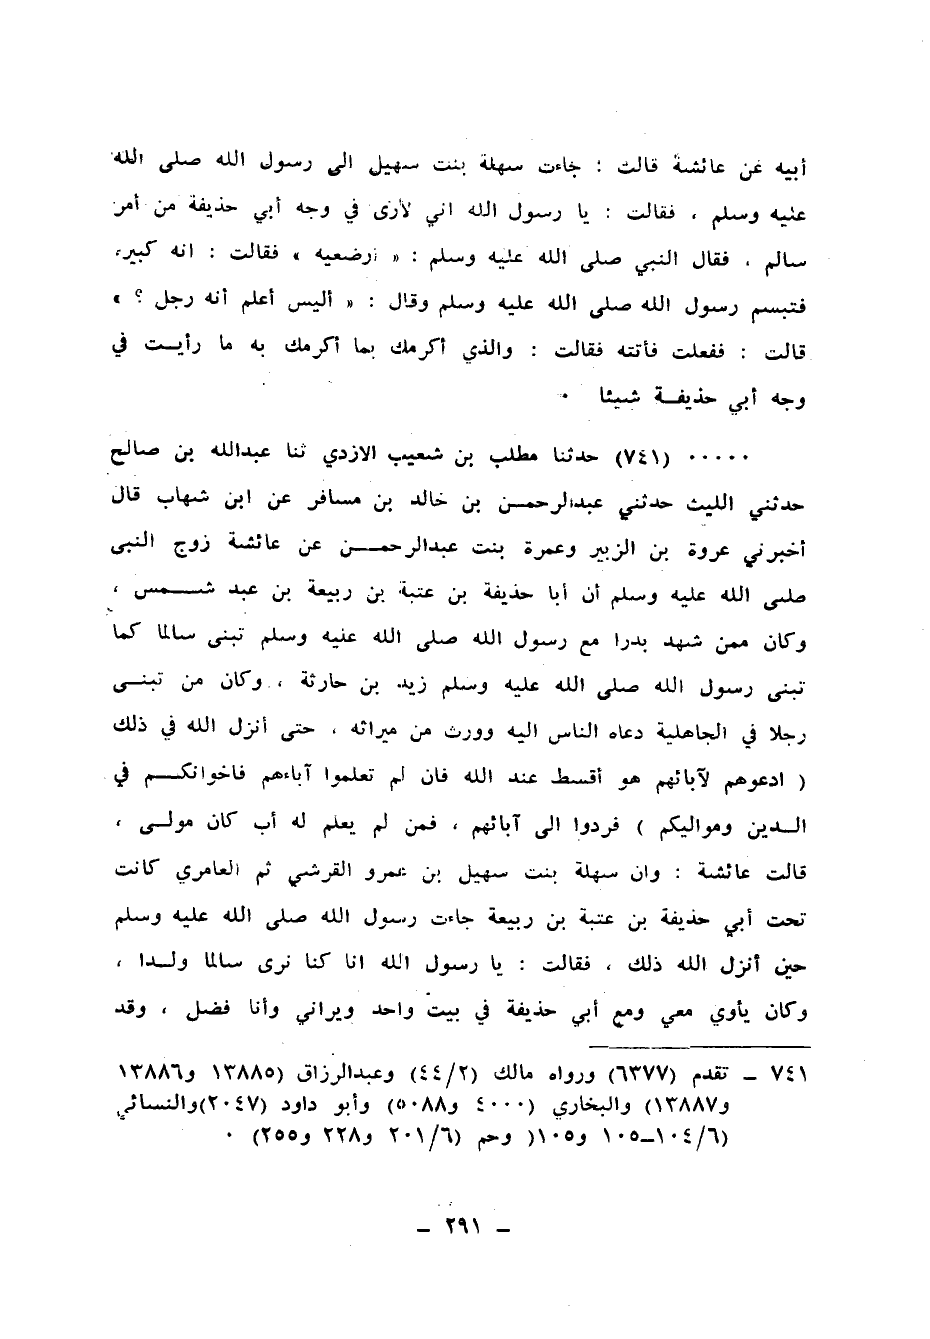 أبيه عن عائشة قالت : جاءت سهلة بنت سهيل الى رسول الله صلى الله
عليه وسلم ، فقالت : يا رسول الله اني لأرى في وجه أبي حذيفة من أمر
سالم ، فقال النبي صلى الله عليه وسلم : « أرضعيه » فقالت : انه كبير،
فتبسم رسول الله صلى الله عليه وسلم وقال : « أليس أعلم أنه رجل ؟ »
قالت : ففعلت فأتته فقالت : والذي أكرمك بما أكرمك به ما رأيت في
وجه أبي حذيفة شيئا .
..... (٧٤١) حدثنا مطلب بن شعيب الازدي ثنا عبدالله بن صالح
حدثني الليث حدثني عبدالرحمن بن خالد بن مسافر عن ابن شهاب قال
أخبرني عروة بن الزبير وعمرة بنت عبدالرحمن عن عائشة زوج النبى
صلى الله عليه وسلم أن أبا حذيفة بن عتبة بن ربيعة بن عبد شمس ،
وكان ممن شهد بدرا مع رسول الله صلى الله عليه وسلم تبنى سالما كما
تبنى رسول الله صلى الله عليه وسلم زيد بن حارثة ، وكان من تبنى
رجلا في الجاهلية دعاه الناس اليه وورث من ميراثه ، حتى أنزل الله في ذلك
( ادعوهم لآبائهم هو أقسط عند الله فان لم تعلموا آباءهم فاخوانكم في
الدين ومواليكم ) فردوا الى آبائهم ، فمن لم يعلم له أب كان مولى ،
قالت عائشة : وان سهلة بنت سهيل بن عمرو القرشي ثم العامري كانت
تحت أبي حذيفة بن عتبة بن ربيعة جاءت رسول الله صلى الله عليه وسلم
حين أنزل الله ذلك ، فقالت : يا رسول الله انا كنا نرى سالما ولدا ،
وكان يأوي معي ومع أبي حذيفة في بيت واحد ويراني وأنا فضل ، وقد
٧٤١ ـ تقدم (٦٣٧٧) ورواه مالك (٤٤/٢) وعبدالرزاق (١٣٨٨٥ و١٣٨٨٦
و١٣٨٨٧) والبخاري (٤٠٠٠ و٥٠٨٨) وأبو داود (٢٠٤٧)والنسائي
(١٠٤/٦ـ١٠٥ و١٠٥( وحم (٢٠١/٦ و٢٢٨ و٢٥٥) .
ـ ٢٩١ ـ